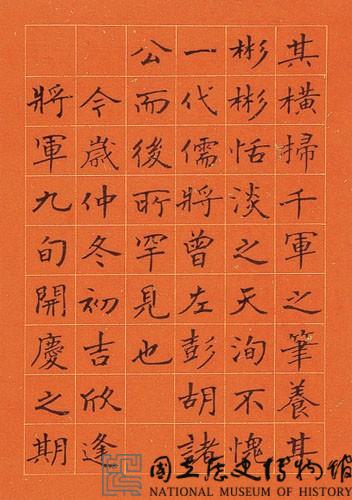 其橫掃千軍之筆養其
彬彬恬淡之天洵不愧
一代儒將曾左彭胡諸
公而後所罕見也
今歲仲冬初吉欣逢
將軍九旬開慶之期
國立歷史博物館
NATIONAL MUSEUM OF HISTORY